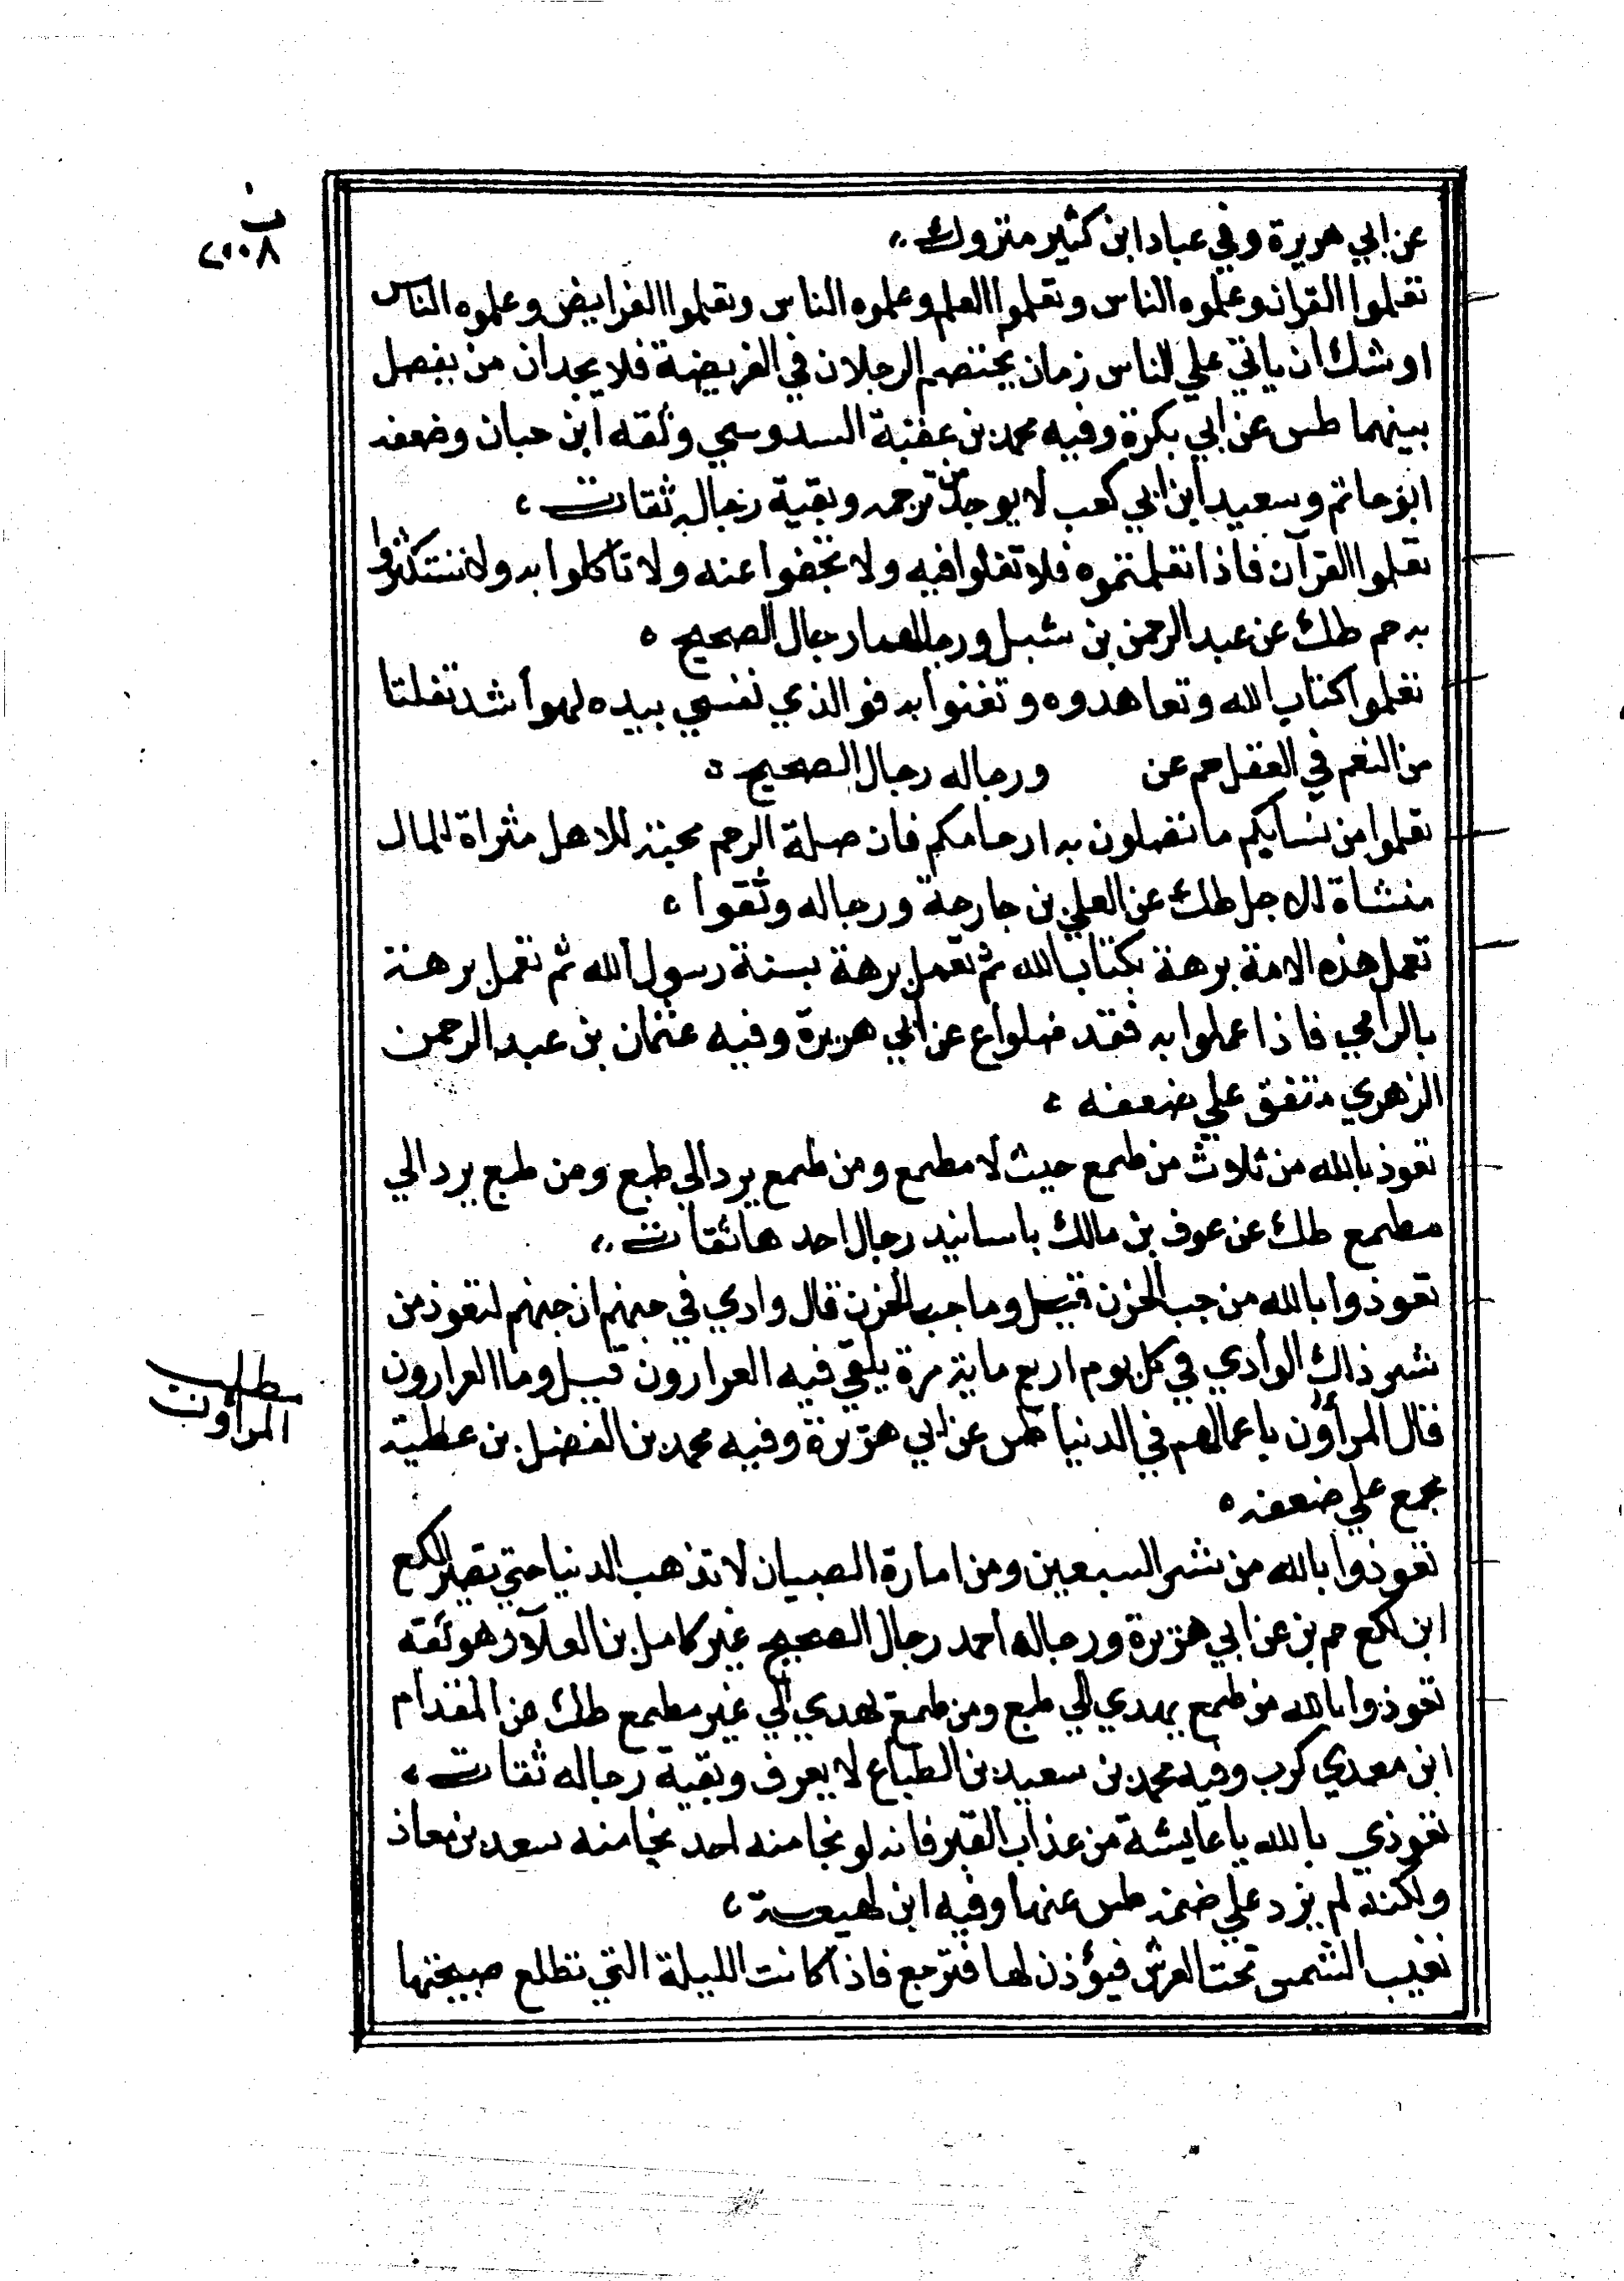 عن ابي هريرة وفي عباد ابن كثير متروك
تعلموا القران وعلموه الناس وتعلموا العلم وعلموه الناس وتعلموا الفرايض وعلموه الناس
اوشك ان ياتي علي الناس زمان يختصم الرجلان في الفريضة فلا يجدان من يفصل
بينهما طس عن ابي بكرة وفيه محمد بن عقبة السدوسي وثقه ابن حبان وضعفه
ابو حاتم وسعيد ابن ابي كعب لا يوجد من ترجمه وبقية رجاله ثقات
تعلموا القرآن فاذا تعلمتموه فلا تغلوا فيه ولا تجفوا عنه ولا تاكلوا به ولا تستكثروا
به حم طك عن عبد الرحمن بن شبل ورجالهما رجال الصحيح
تعلموا كتاب الله وتعاهدوه وتغنوا به فوالذي نفسي بيده لهو أشد تفلتا
من النعم في العقل حم عن ورجاله رجال الصحيح
تعلموا من نسايكم ما تصلون به ارحامكم فان صلة الرحم محبة للاهل مثراة للمال
منشاة للاجل طك عن العلي بن جارحة ورجاله وثقوا
تعمل هذه الامة برهة بكتاب الله ثم تعمل برهة بسنة رسول الله ثم تعمل برهة
بالراي فاذا عملوا به فقد ضلوا ع عن ابي هريرة وفيه عثمان بن عبد الرحمن
الزهري متفق علي ضعفه
تعوذ بالله من ثلاث من طمع حيث لا مطمع ومن طمع يرد الي طبع ومن طبع يرد الي
مطمع طك عن عوف بن مالك باسانيد رجال احدها ثقات
تعوذوا بالله من جب الحزن قيل وما جب الحزن قال وادي في جهنم ان جهنم لتعوذ من
شر ذاك الوادي في كل يوم اربع ماية مرة يلقي فيه العرارون قيل وما العرارون
قال المرأون باعمالهم في الدنيا طس عن ابي هريرة وفيه محمد بن الفضل بن عطية
مجمع علي ضعفه
تعوذوا بالله من شر السبعين ومن امارة الصبيان لا تذهب الدنيا حتي تصير للكع
ابن لكع حم بز عن ابي هريرة ورجاله احمد رجال الصحيح غير كامل بن العلآ وهو ثقه
تعوذوا بالله من طمع يهدي الي طبع ومن طمع يهدي الي غير مطمع طك عن المقدام
ابن معدي كرب وفيه محمد بن سعيد بن الطباع لا يعرف وبقية رجاله ثقات
تعوذي بالله يا عايشة من عذاب القبر فانه لو نجا منه احد نجا منه سعد بن معاذ
ولكنه لم يزد علي ضمة طس عنها وفيه ابن لهيعة
تغيب الشمس تحت العرش فيؤذن لها فترجع فاذا كانت الليلة التي تطلع صبيحتها
مطلب
المرأون